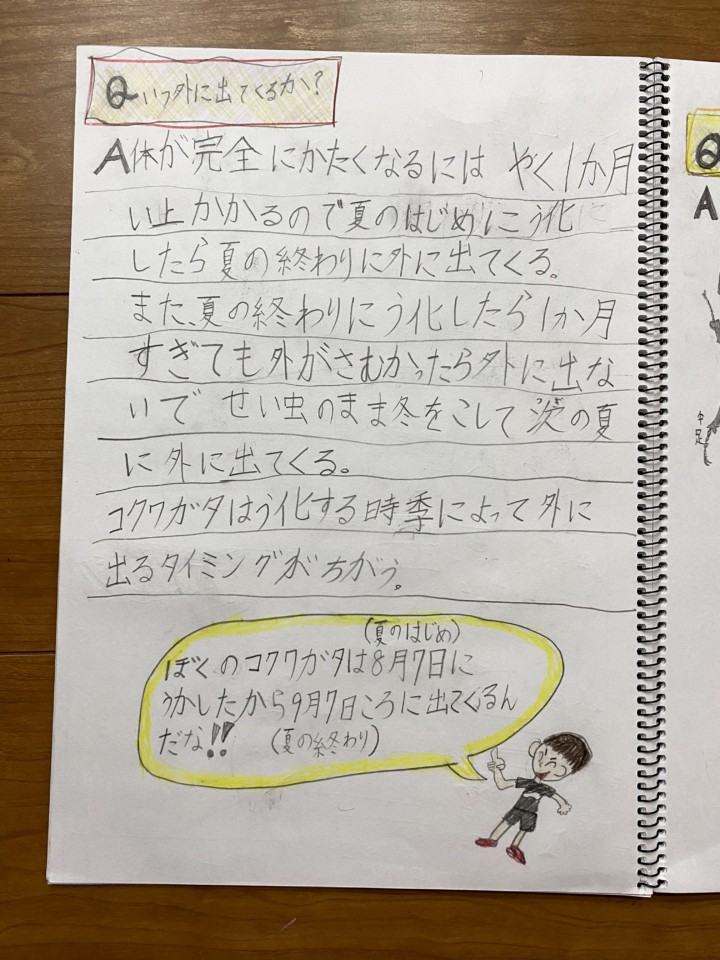 Qいつ外に出てくるか?
A体が完全にかたくなるには やく1か月
い上かかるので夏のはじめにう化
したら夏の終わりに外に出てくる。
また、夏の終わりにう化したら1か月
すぎても外がさむかったら外に出な
いで せい虫のまま冬をこして次の夏
に外に出てくる。
コクワガタはう化する時季によって外に
出るタイミングがちがう。
(夏のはじめ)
ぼくのコクワガタは8月7日に
うかしたから9月7日ころに出てくるん
だな!! (夏の終わり)
Q
A
中足